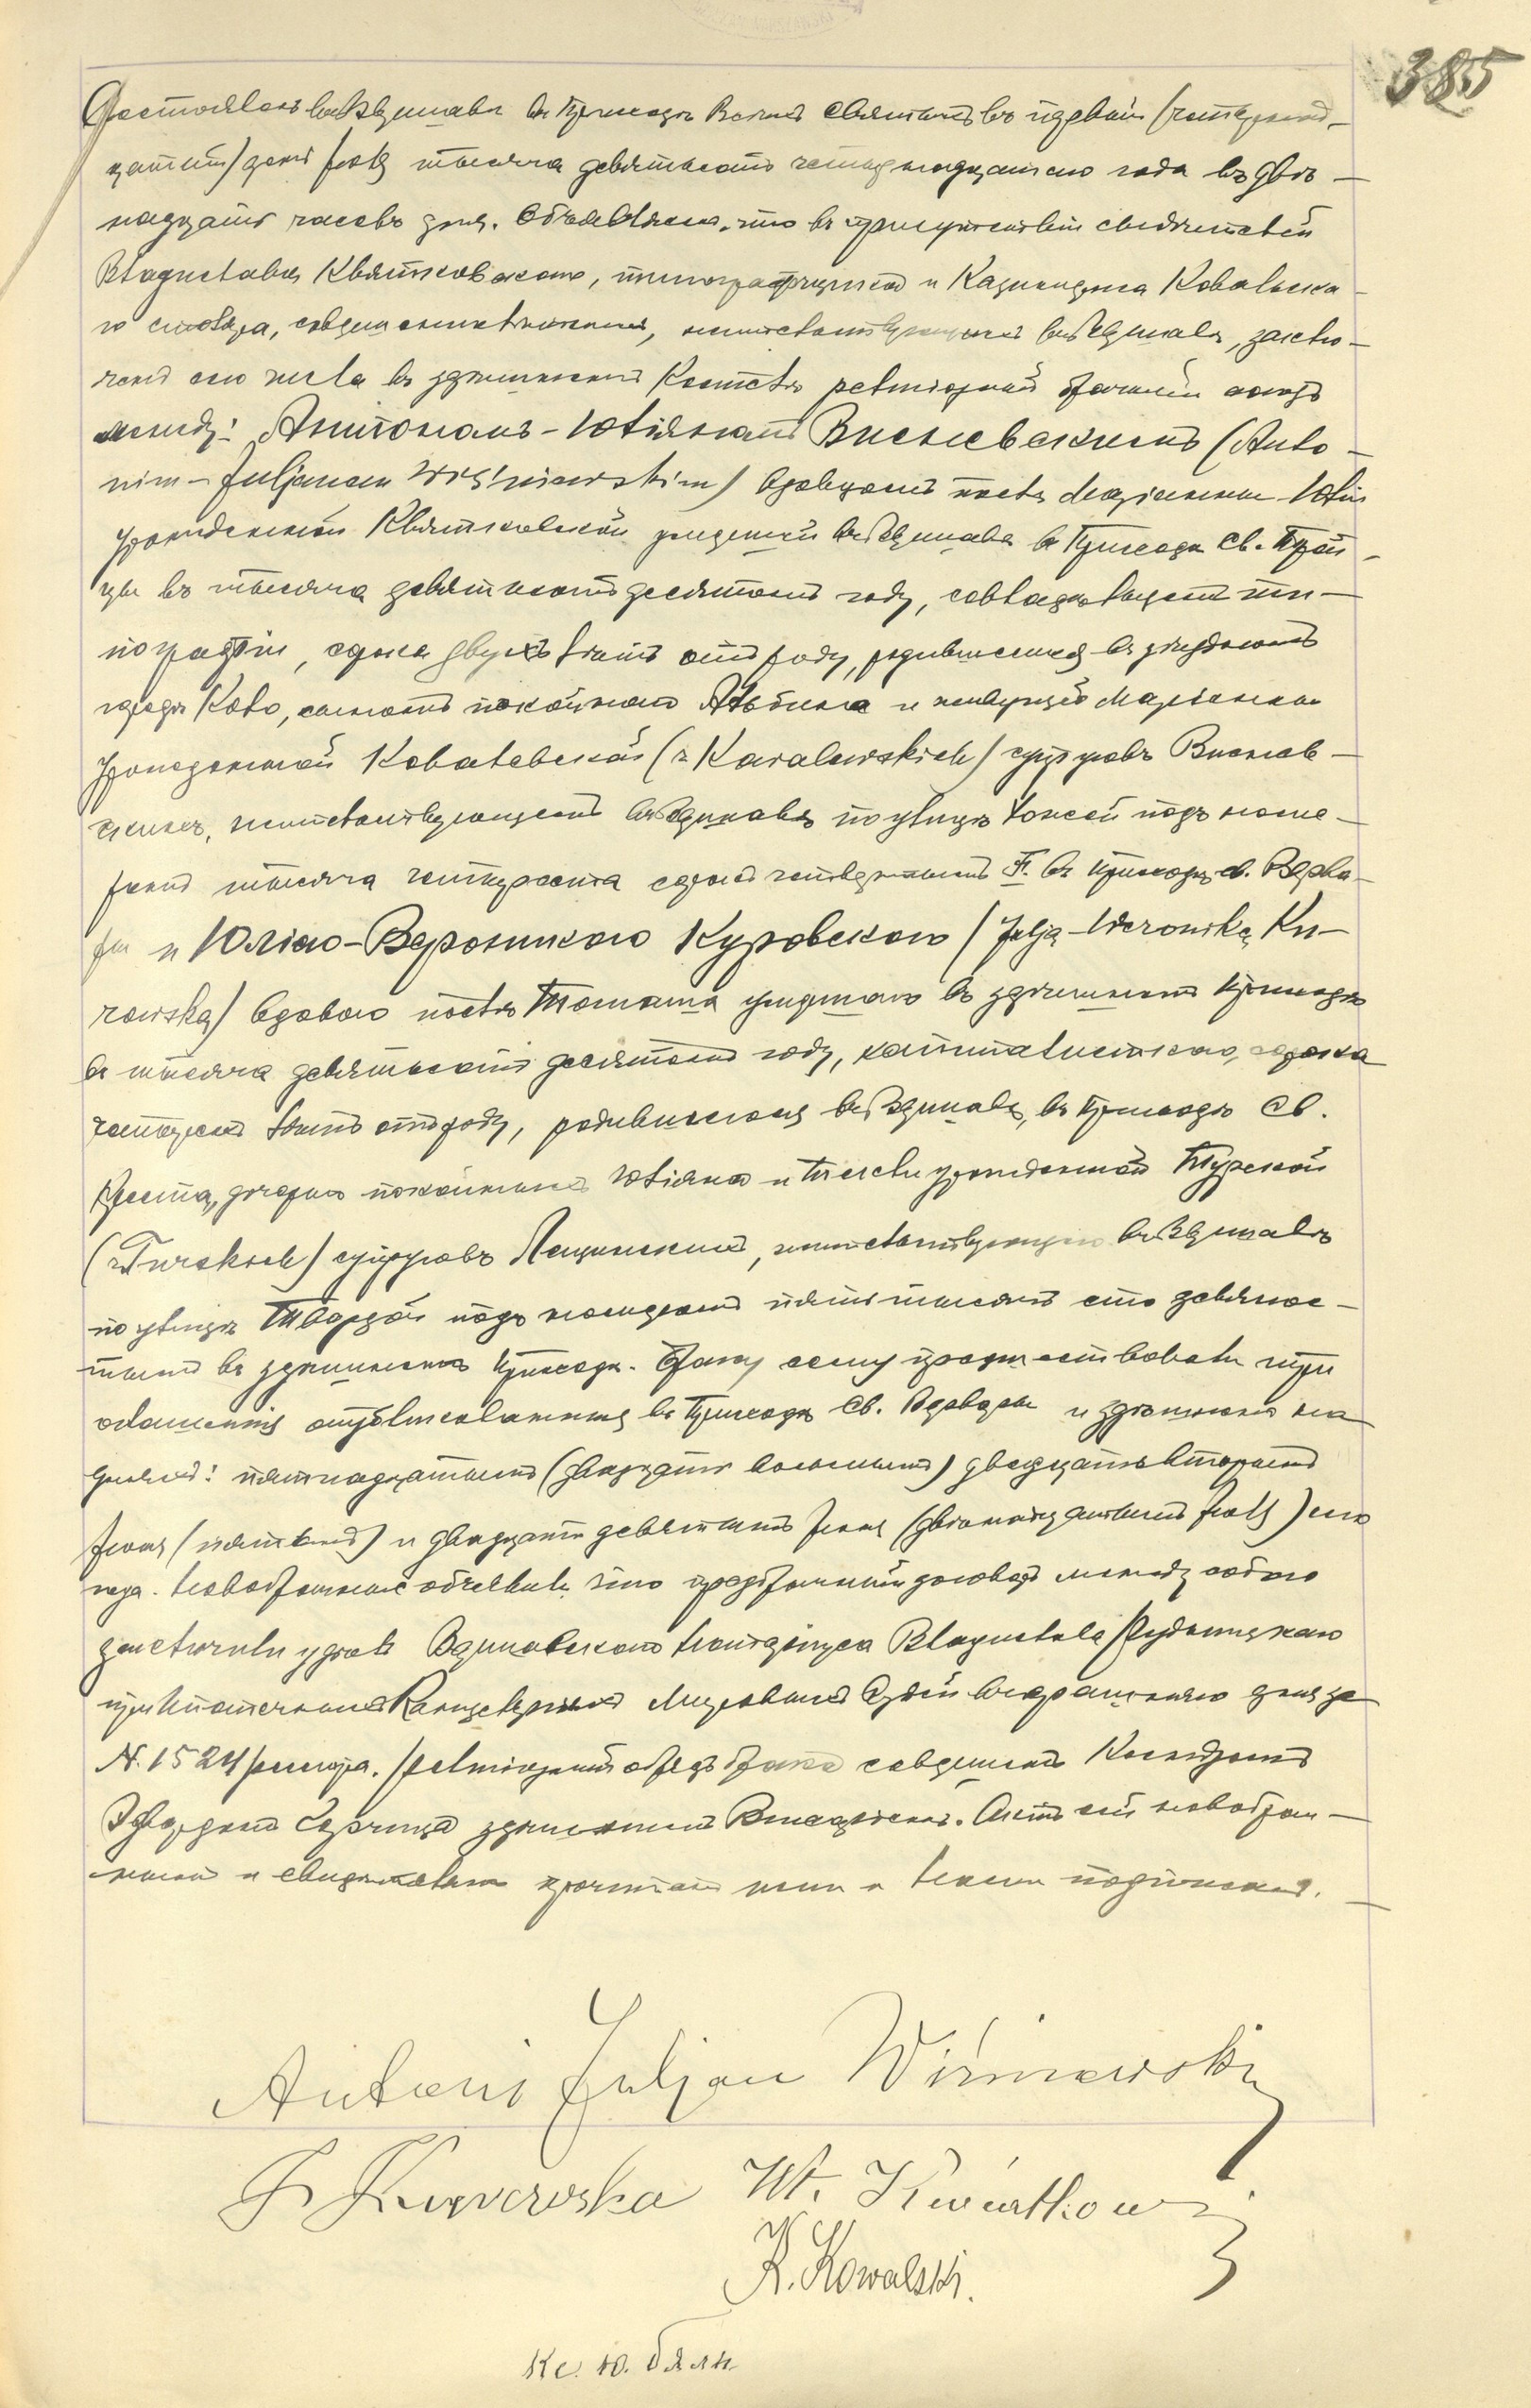 385
Состоялось въ Варшавѣ въ Приходѣ Всѣхъ Святыхъ въ первый (четырнад-
цатый) день Іюля тысяча девятьсотъ четырнадцатаго года въ двѣ-
надцать часовъ дня. Объявляемъ, что въ присутствіи свидѣтелей
Владислава Квятковскаго, типографщика и Казимира Ковальска-
го столяра, совершеннолѣтнихъ, жительствующихъ въ Варшавѣ, заклю-
ченъ сего числа въ здѣшнемъ Костелѣ религіозный брачный союзъ
между: Антономъ-Юліяномъ Висневскимъ (Anto-
nim-Juljanem Wiśniewskim) вдовцомъ послѣ Маріанны Юліи
урожденной Квятковской умершей въ Варшавѣ въ Приходѣ Св. Трой-
цы въ тысяча девятьсотъ десятомъ году, совладѣльцемъ ти-
пографіи, сорока двухъ лѣтъ отъ роду, родившемся въ уѣздномъ
городѣ Коло, сыномъ покойнаго Альбина и живущей Маріанны
урожденной Ковалевской (z Kawalewskich) супруговъ Виснев-
скихъ, жительствующемъ въ Варшавѣ по улицѣ Хожей подъ номе-
ромъ тысяча четыреста сорокъ четвертымъ F. въ Приходѣ Св. Варва-
ры и Юліею-Вероникою Куровскою (Julją-Weroniką Ku-
rowską) вдовою послѣ Томаша умершаго въ здѣшнемъ Приходѣ
въ тысяча девятьсотъ десятомъ году, капиталисткою, сорока
четырехъ лѣтъ отъ роду, родившеюся въ Варшавѣ, въ Приходѣ Св.
Креста, дочерью покойныхъ Юліяна и Теклі урожденной Турской
(z Turskich) супруговъ Лещинскихъ, жительствующею въ Варшавѣ
по улицѣ Твардой подъ номеромъ пять тысячъ сто девянос-
тымъ въ здѣшнемъ Приходѣ. Браку сему предшествовали три
оглашенія опубликованныя въ Приходѣ Св. Варвары и здѣшнемъ на
дняхъ: пятнадцатымъ (двадцать восьмымъ) двадцать вторымъ
Іюня (пятымъ) и двадцать девятымъ Іюня (двѣнадцатымъ Іюля) сего
года. Новобрачные объявили, что предбрачный договоръ между собою
заключили у дѣлъ Варшавскаго Нотаріуса Владислава Рудницкаго
при Ипотечныхъ Канцеляріяхъ Мировыхъ Судей вчерашняго дня за
N. 1524 реестра. Религіозный обрядъ брака совершенъ Ксендзомъ
Эдвардомъ здѣшнимъ Викаріемъ. Актъ сей новобрач-
нымъ и свидѣтелямъ прочитанъ нами и ими подписанъ.
Antoni Juljan Wiśniewski
J Kurowska Wł. Kwiatkowski
K. Kowalski.
Кс. Ю. Бялы